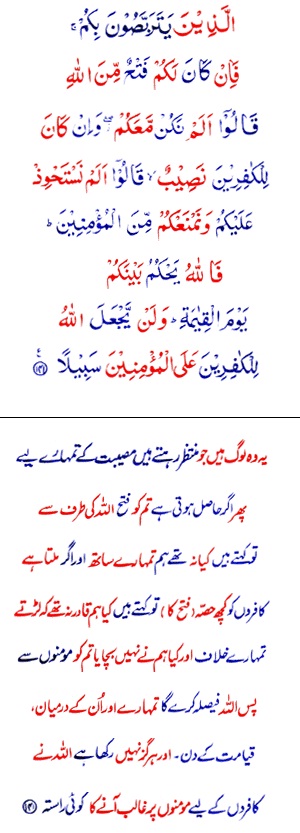 الَّذِيْنَ يَتَرَبَّصُوْنَ بِكُمْ ۚ
فَاِنْ كَانَ لَكُمْ فَتْحٌ مِّنَ اللّٰهِ
قَالُوْۤا اَلَمْ نَكُنْ مَّعَكُمْ ۖ وَاِنْ كَانَ
لِلْكٰفِرِيْنَ نَصِيْبٌ ۙ قَالُوْۤا اَلَمْ نَسْتَحْوِذْ
عَلَيْكُمْ وَنَمْنَعْكُمْ مِّنَ الْمُؤْمِنِيْنَ ؕ
فَاللّٰهُ يَحْكُمُ بَيْنَكُمْ
يَوْمَ الْقِيٰمَةِ ؕ وَلَنْ يَّجْعَلَ اللّٰهُ
لِلْكٰفِرِيْنَ عَلَى الْمُؤْمِنِيْنَ سَبِيْلًا ﴿۱۴۱﴾
یہ وہ لوگ ہیں جو منتظر رہتے ہیں مصیبت کے تمہارے لیے
پھر اگر حاصل ہوتی ہے تم کو فتح اللہ کی طرف سے
تو کہتے ہیں کیا نہ تھے ہم تمہارے ساتھ اور اگر ملتا ہے
کافروں کو کچھ حصّہ (فتح کا) تو کہتے ہیں کیا ہم قادر نہ تھے کہ لڑتے
تمہارے خلاف اور کیا ہم نے نہیں بچایا تم کو مؤمنوں سے
پس اللہ فیصلہ کرے گا تمہارے اور اُن کے درمیان،
قیامت کے دن۔ اور ہرگز نہیں رکھا ہے اللہ نے
کافروں کے لیے مؤمنوں پر غالب آنے کا کوئی راستہ ﴿۱۴۱﴾